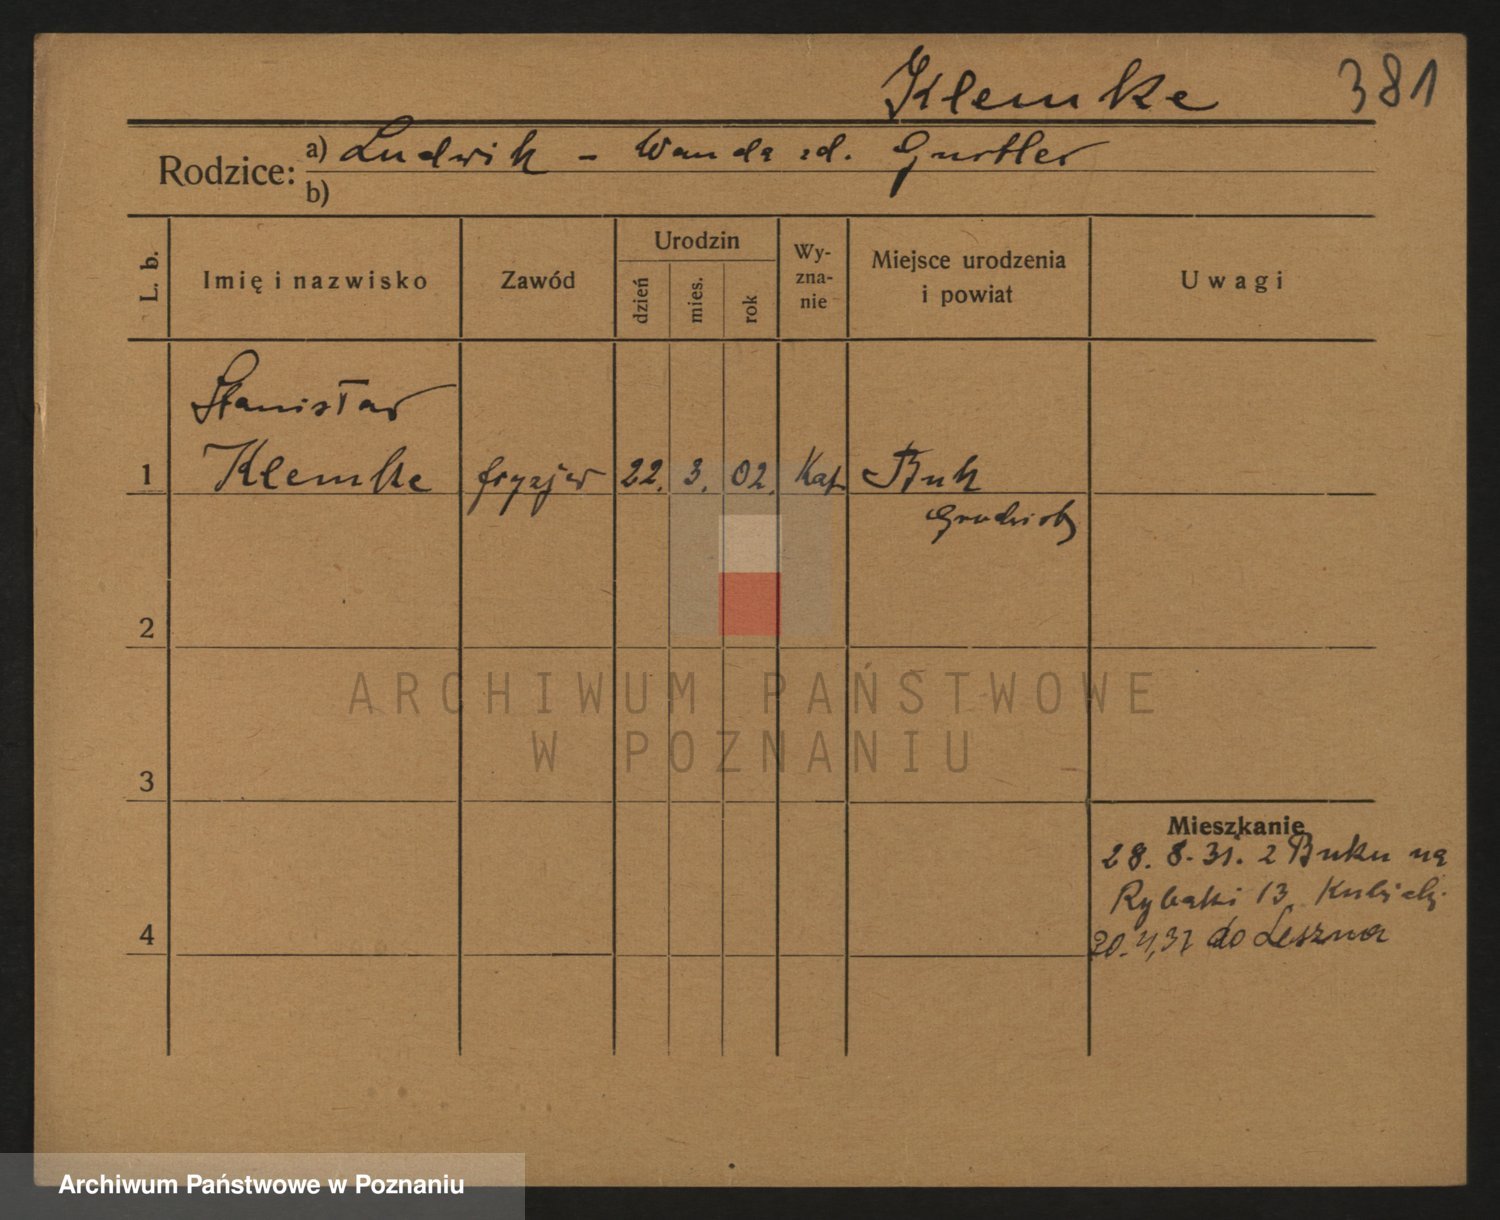 Klemke 381
Rodzice: a) Ludwik - Wanda zd. Gurtler
b)
L. b. Imię i nazwisko Zawód Urodzin dzień mies. rok Wy-zna-nie Miejsce urodzenia i powiat Uwagi
Stanisław
1 Klemke fryzjer 22. 3. 02. Kat Buk
Grodzisk
2
ARCHIWUM PAŃSTWOWE
W POZNANIU
3
Mieszkanie
28. 8. 31. z Buku na
Rybaki 13
4 do Leszna
Archiwum Państwowe w Poznaniu